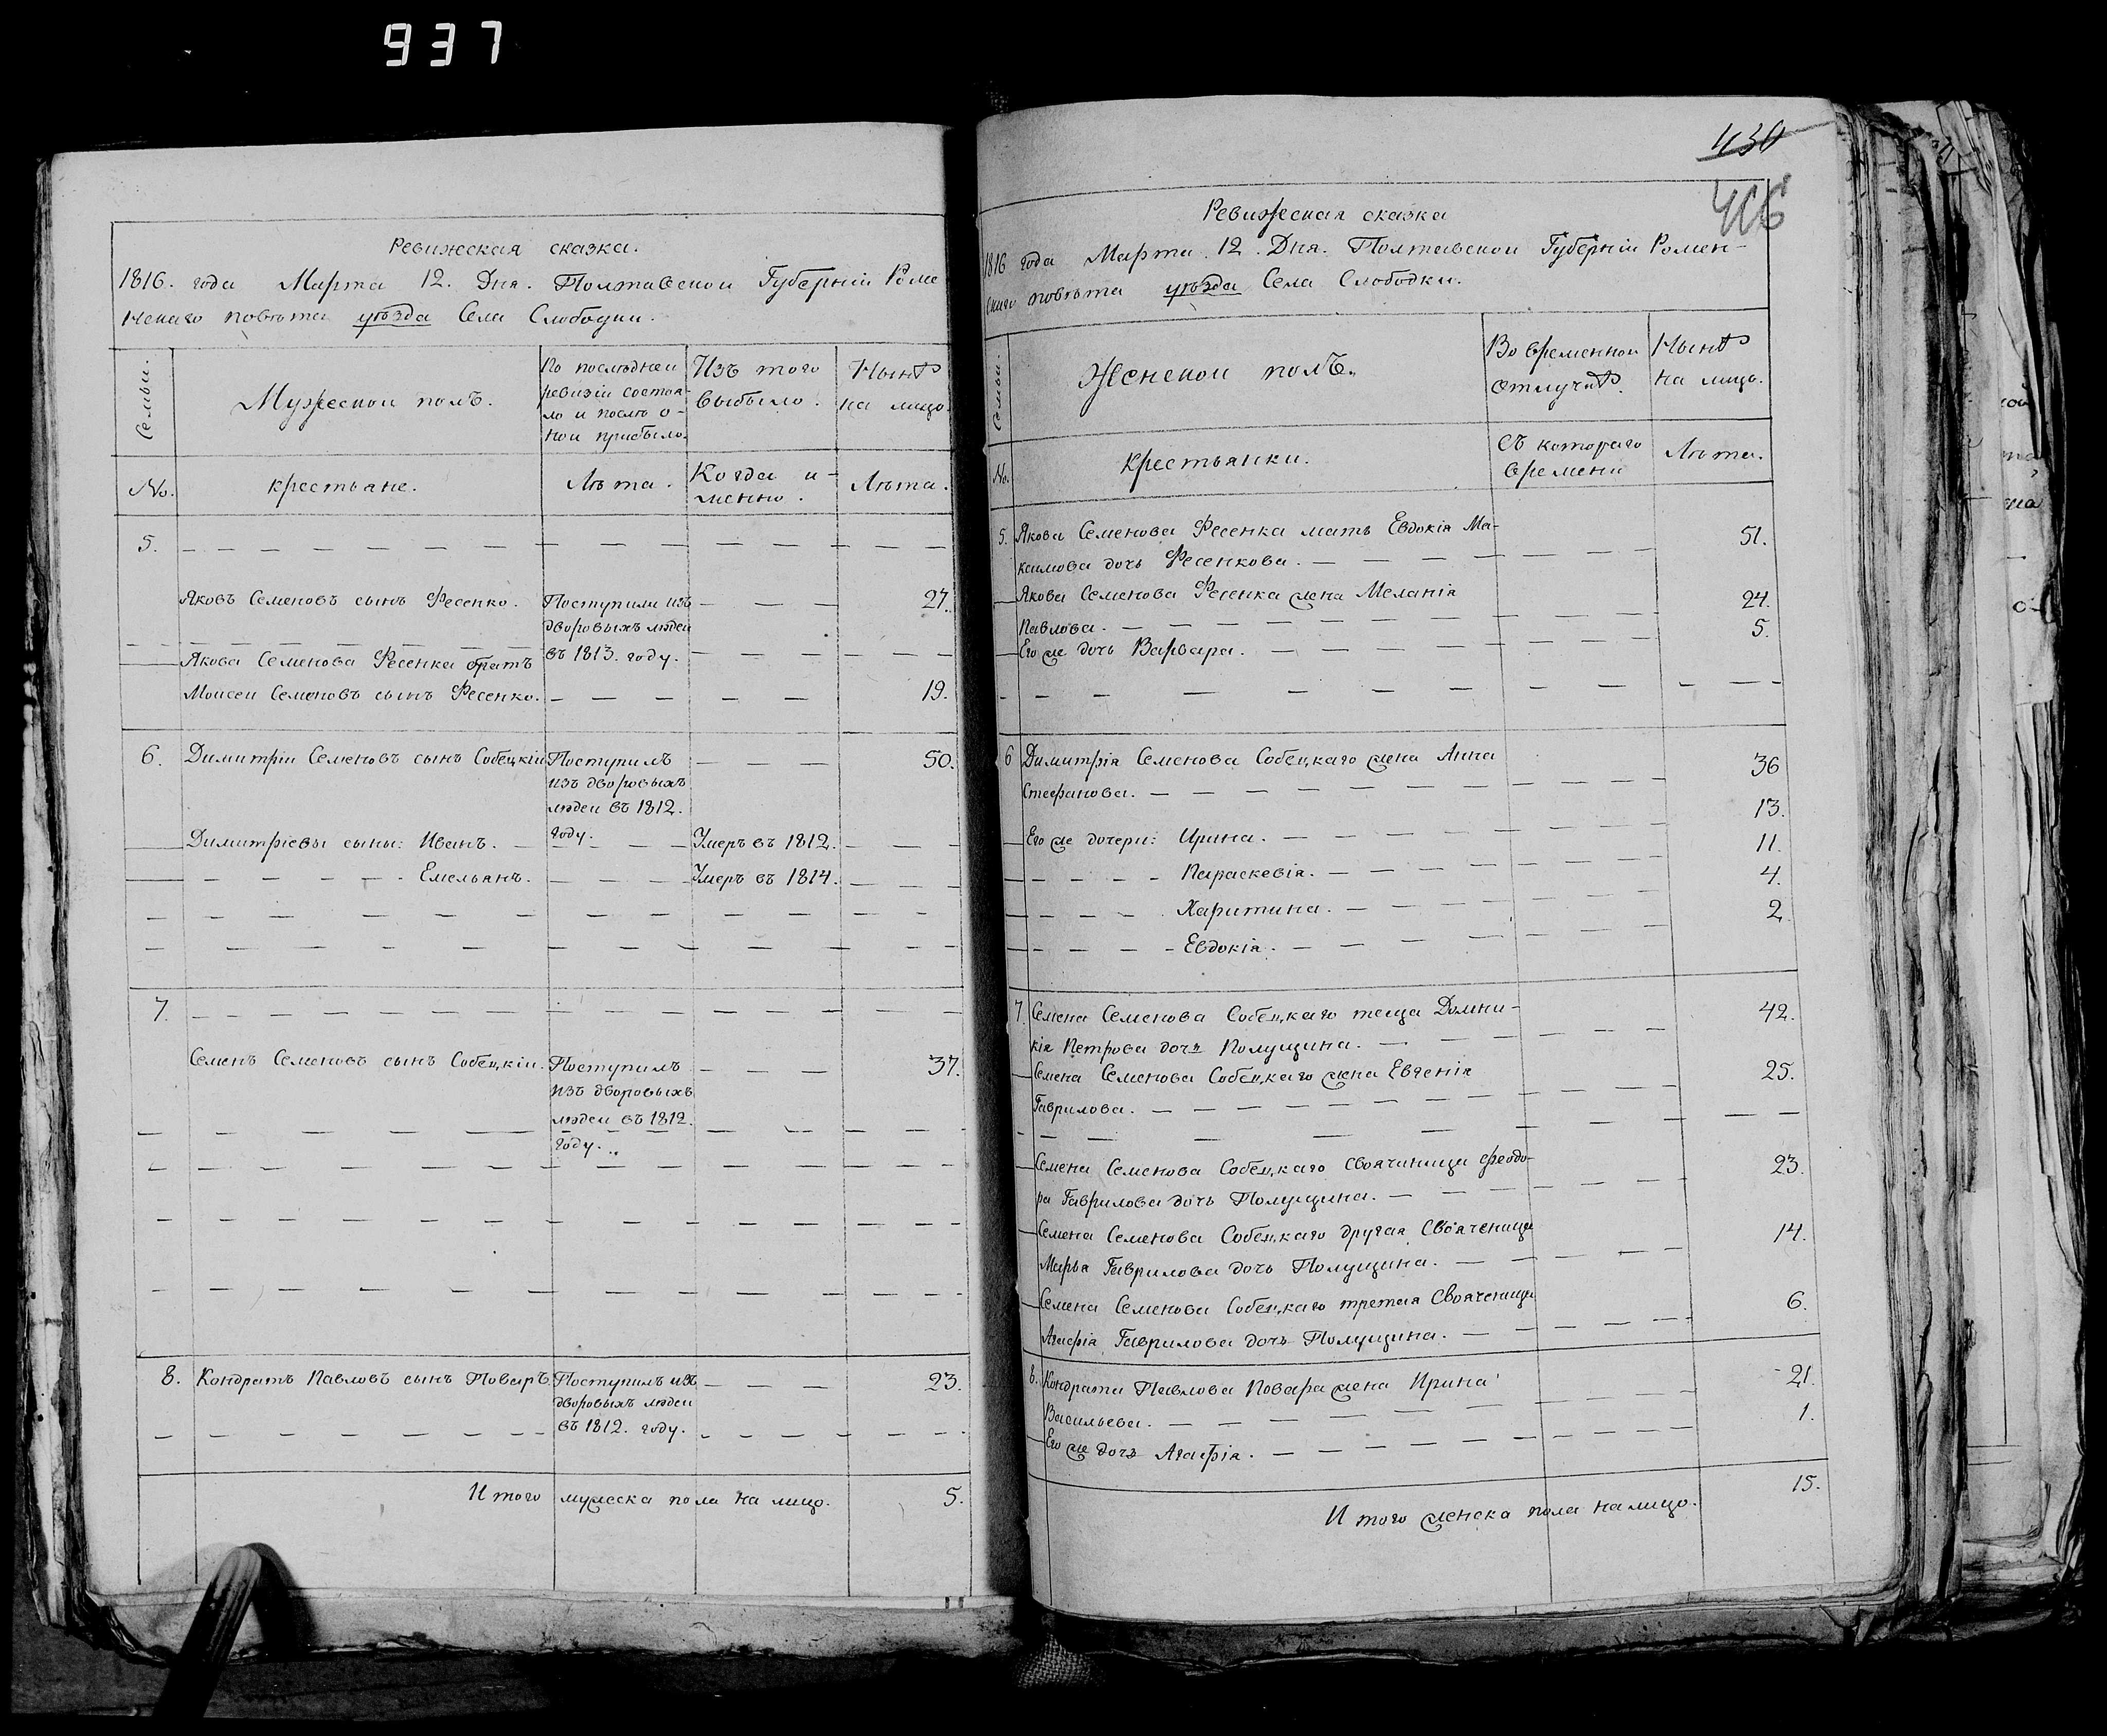 937
Ревижская сказка.
1816. года Марта 12. Дня. Полтавскои Губерніи Роме
нскаго повѣта уѣзда Села Слободки.
Семьи.
Мужескои полъ.
По послѣднеи
ревизіи состоя-
ло и послѣ о-
нои прибыло.
Изъ того
выбыло.
Нынѣ
на лицо.
No.
крестьяне.
Лѣта.
Когда и-
менно.
Лѣта.
5.
Яковъ Семеновъ сынъ Фесенко.
Поступили изъ
дворовыхъ людеи
въ 1813. году.
27.
Якова Семенова Фесенка братъ
Моисеи Семеновъ сынъ Фесенко.
19.
6.
Димитріи Семеновъ сынъ Собецкіи
Поступилъ
изъ дворовыхъ
людеи въ 1812.
году.
50.
Димитріевы сыны: Иванъ.
Умеръ въ 1812.
Емельянъ.
Умеръ въ 1814.
7.
Семенъ Семеновъ сынъ Собецкіи.
Поступилъ
изъ дворовыхъ
людеи въ 1812.
году.
37.
8.
Кондратъ Павловъ сынъ Поваръ.
Поступилъ изъ
дворовыхъ людеи
въ 1812. году.
23.
Итого мужеска пола на лицо.
5.
430
Ревижеская сказка
1816 года Марта 12. Дня. Полтавскои Губерніи Ромен-
скаго повѣта уѣзда Села Слободки.
Семьи.
Женскои полъ.
Во временнои
отлучкѣ.
Нынѣ
на лицо.
No.
крестьянки.
Съ котораго
времени
Лѣта.
5. Якова Семенова Фесенка мать Евдокія Ма-
ксимова дочь Фесенкова.
51.
Якова Семенова Фесенка жена Меланія
Павлова.
24.
Его же дочь Варвара.
5.
6 Димитрія Семенова Собецкаго жена Анна
Стефанова.
36
Его же дочери: Ирина.
13.
Параскевія.
11.
Харитина.
4.
Евдокія.
2.
7. Семена Семенова Собецкаго теща Домни-
кія Петрова дочь Полущина.
42.
Семена Семенова Собецкаго жена Евгенія
Гаврилова.
25.
Семена Семенова Собецкаго своячиница Феодо-
ра Гаврилова дочь Полущина.
23.
Семена Семенова Собецкаго другая Свояченица
Марья Гаврилова дочь Полущина.
14.
Семена Семенова Собецкаго третая Свояченица
Агафія Гаврилова дочь Полущина.
6.
8. Кондрата Павлова Повара жена Ирина
Васильева.
21.
Его же дочь Агафія.
1.
Итого женска пола на лицо.
15.